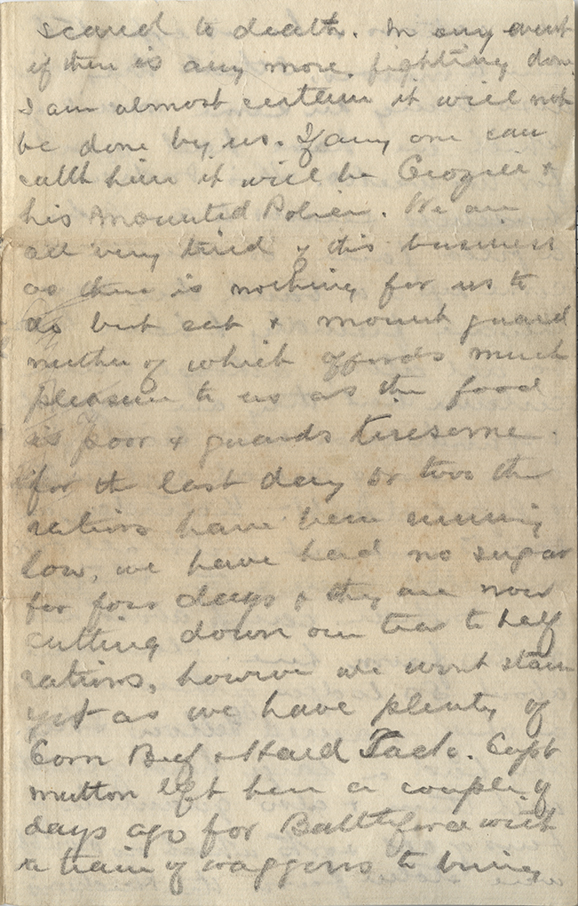 scared to death. In any event
if there is any more fighting done
I am almost certain it will not
be done by us. If any one can
catch him it will be Crozier &
his Mounted Police. We are
all very tired of this business
as there is nothing for us to
do but eat & mount guard
neither of which affords much
pleasure to us as the food
is poor & guards tiresome.
for the last day or two the
rations have been running
low, we have had no sugar
for four days & they are now
cutting down our tea to half
rations, however we wont starve
yet as we have plenty of
Corn Beef & Hard Tack. Capt
Mutton left here a couple of
days ago for Battleford with
a train of waggons to bring